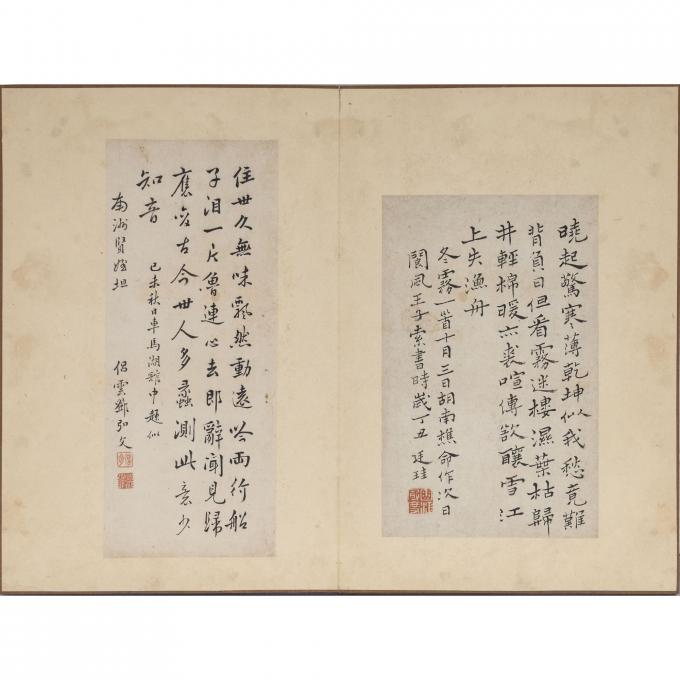 曉起驚寒薄乾坤似我愁竟難
背負日但看霧迷樓濕葉枯歸
井輕棉暖亦裘喧傳欲釀雪江
上失漁舟
冬霧一首十月三日胡南樵命作次日
閬風王子索書時歲丁丑 廷珪
住世久無味飄然動遠吟兩行船
子泪一片魯連心去即辭聞見歸
應變古今世人多蠡測此意少
知音
己未秋日車馬湖舘中題似
南洲賢姪坦
侶雲鄧弘文